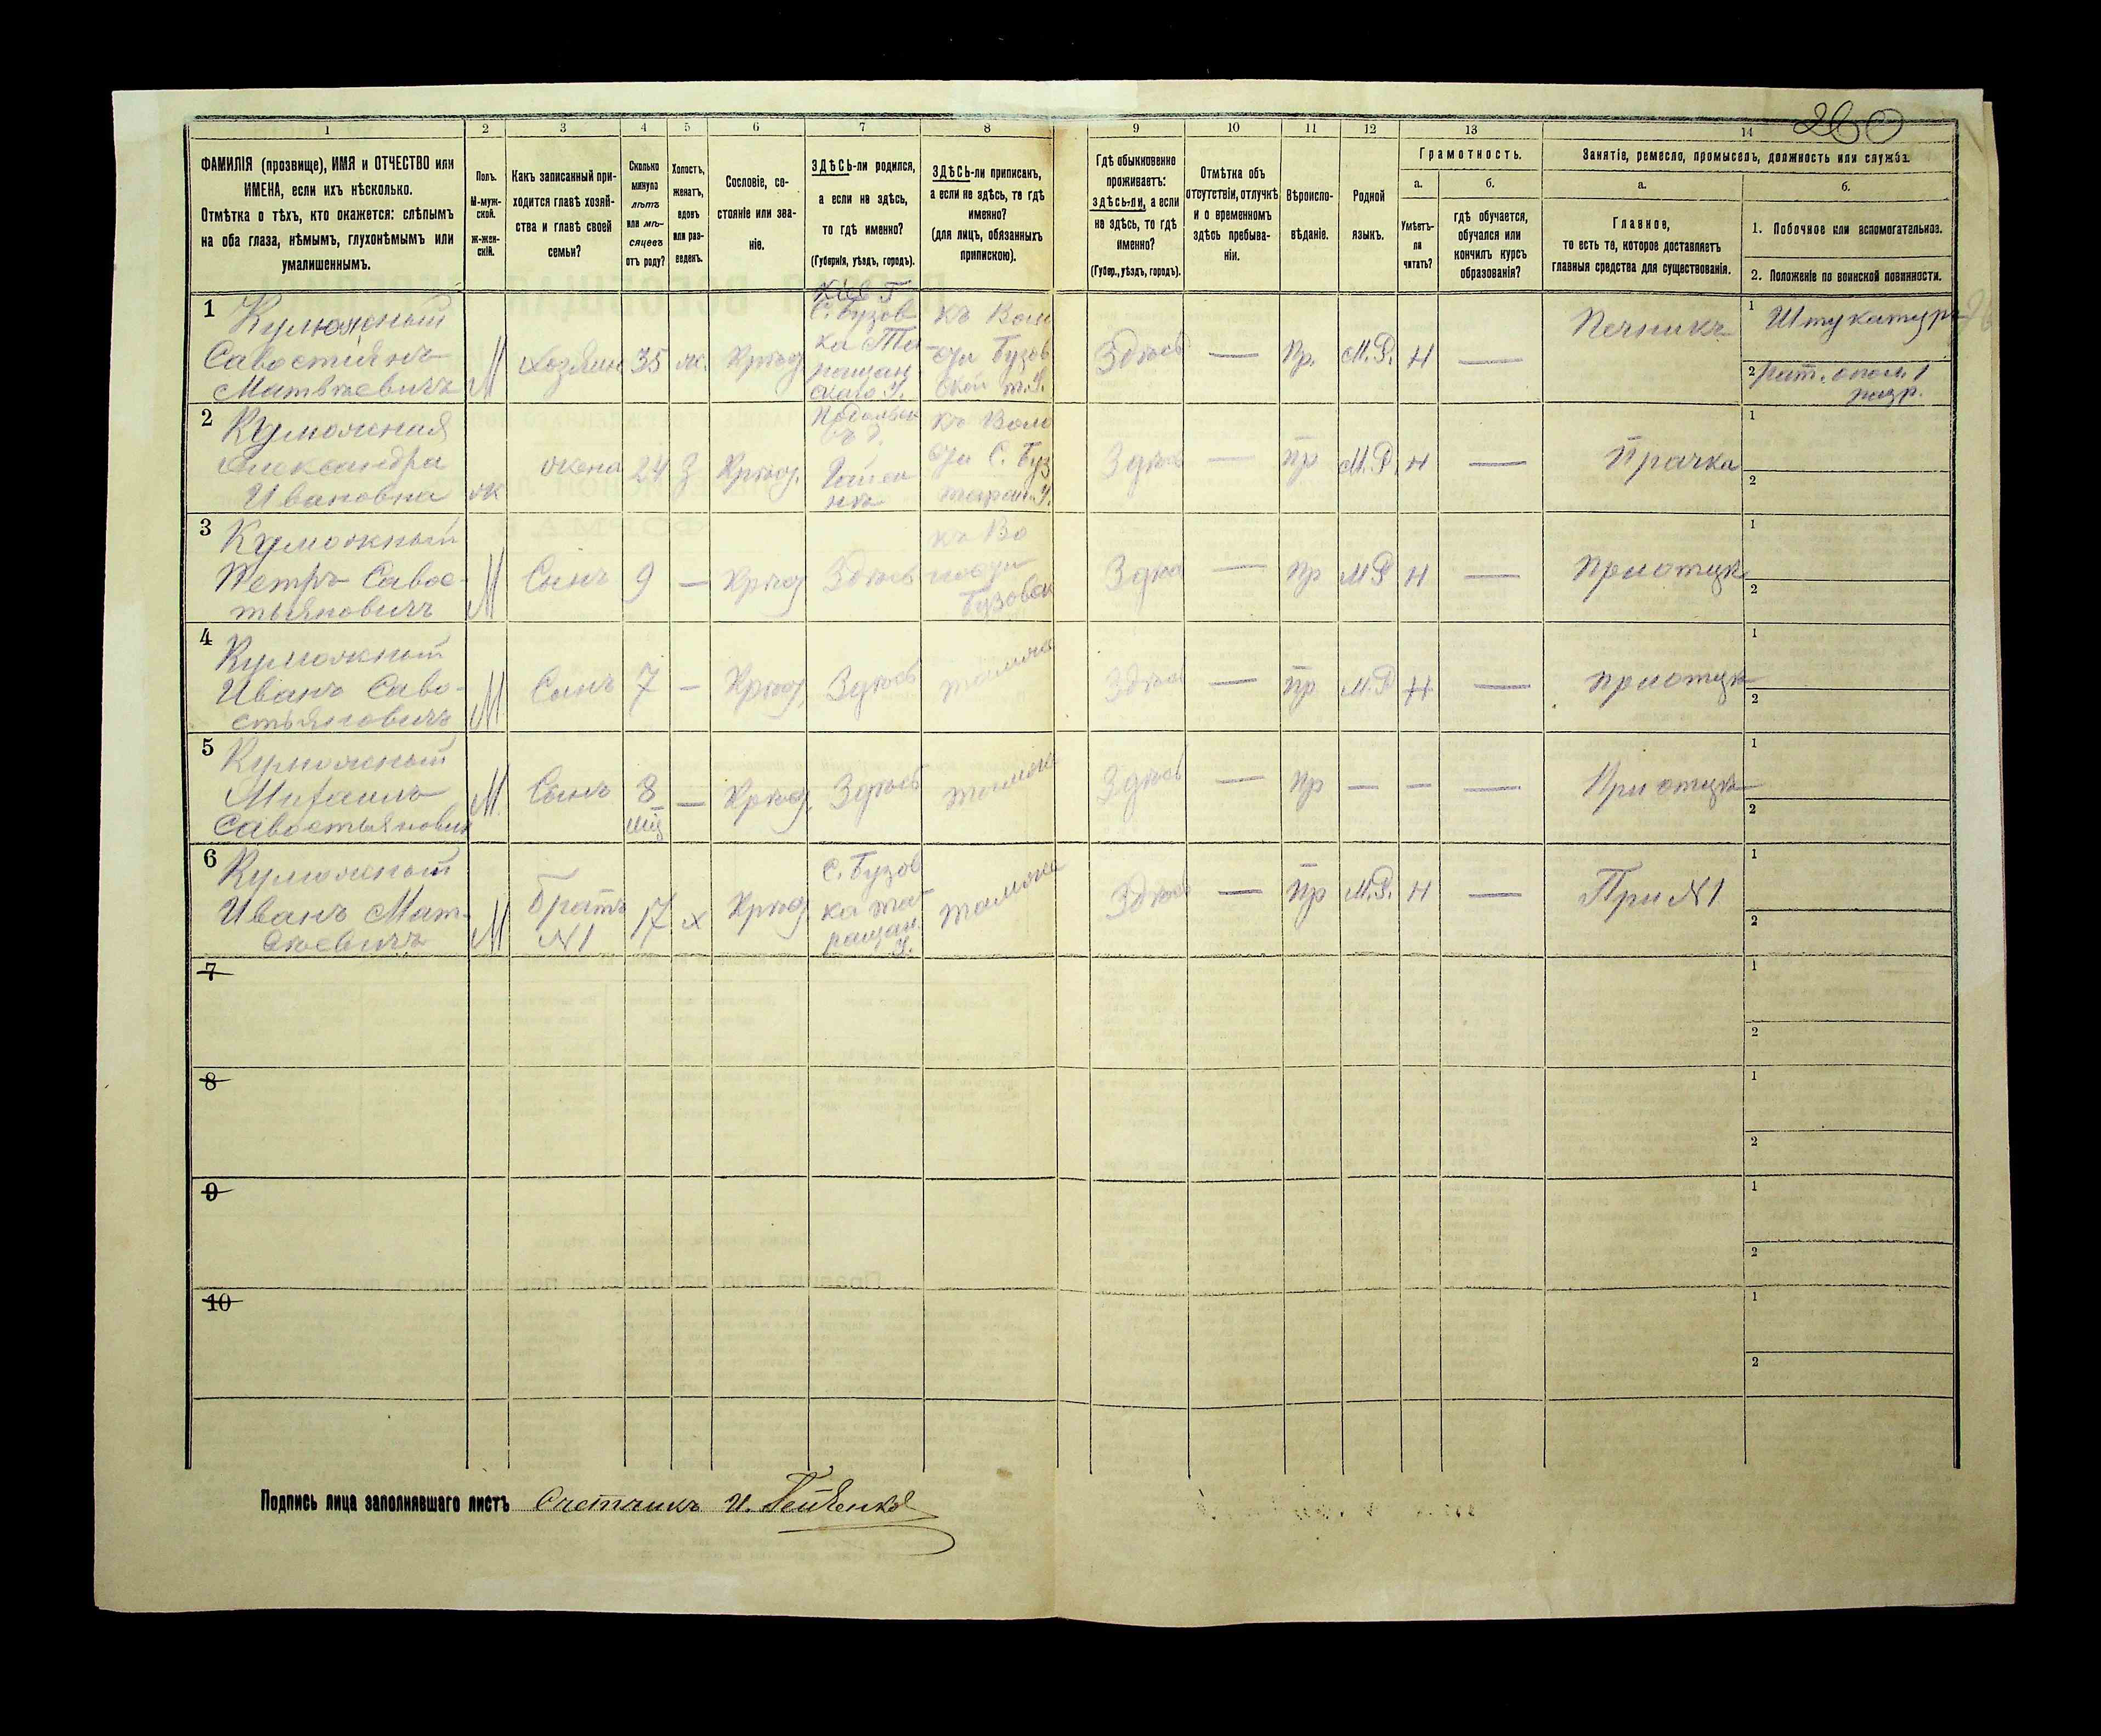 260
1 2 3 4 5 6 7 8 9 10 11 12 13 14
ФАМИЛІЯ (прозвище), ИМЯ и ОТЧЕСТВО или
ИМЕНА, если ихъ нѣсколько.
Отмѣтка о тѣхъ, кто окажется: слѣпымъ
на оба глаза, нѣмымъ, глухонѣмымъ или
умалишеннымъ.
Полъ.
М-муж-
ской.
Ж-жен-
скій.
Какъ записанный при-
ходится главѣ хозяй-
ства и главѣ своей
семьи?
Сколько
минуло
лѣтъ
или мѣ-
сяцевъ
отъ роду?
Холостъ,
женатъ,
вдовъ
или раз-
веденъ.
Сословіе, со-
стояніе или зва-
ніе.
ЗДѢСЬ-ли родился,
а если не здѣсь,
то гдѣ именно?
(Губернія, уѣздъ, городъ).
ЗДѢСЬ-ли приписанъ,
а если не здѣсь, то гдѣ
именно?
(для лицъ, обязанныхъ
припискою).
Гдѣ обыкновенно
проживаетъ:
здѣсь-ли, а если
не здѣсь, то гдѣ
именно?
(Губер., уѣздъ, городъ).
Отмѣтка объ
отсутствіи, отлучкѣ
и о временномъ
здѣсь пребыва-
ніи.
Вѣроиспо-
вѣданіе.
Родной
языкъ.
Грамотность.
а.
Умѣетъ-
ли
читать?
б.
гдѣ обучается,
обучался или
кончилъ курсъ
образованія?
Занятіе, ремесло, промыселъ, должность или служба.
а.
Главное,
то есть то, которое доставляетъ
главныя средства для существованія.
б.
1. Побочное или вспомогательное.
2. Положеніе по воинской повинности.
1
Куможный
Савостіянъ
Матвѣевичъ
М
Хозяин
35
ж.
Крѣст
Кіев Г
С. Бузов
ка Та
ращан
скаго У.
къ Воло
сти Бузов
ской т. У.
Здѣсь
—
Пр.
М.Р.
Н
—
Печникъ
1 Штукатуръ
2 рат. опол. 1
разр.
2
Куможная
Александра
Ивановна
ж
жена
24
З
Крѣст.
Подольск
Гайси
нъ
къ Воло
сти С. Буз
таращ. У.
Здѣсь
—
пр
М.Р.
Н
—
Прачка
1
2
3
Куможный
Петръ Савос-
тьяновичъ
М
Сынъ
9
—
Крѣст
Здѣсь
къ Во
лости
Бузовск
Здѣсь
—
Пр
М.Р
Н
—
При отцѣ
1
2
4
Куможный
Иванъ Саво-
стьяновичъ
М
Сынъ
7
—
Крѣст.
Здѣсь
тамже
Здѣсь
—
пр
М.Р
Н
—
При отцѣ
1
2
5
Куможный
Михаилъ
Савостьянович
М
Сынъ
8
мѣц
—
Крѣст.
Здѣсь
тамже
Здѣсь
—
Пр
—
—
—
При отцѣ
1
2
6
Куможный
Иванъ Мат-
вѣевичъ
М
Братъ
N 1
17
х
Крѣст
С. Бузов
ка та-
ращан.
У.
тамже
Здѣсь
—
Пр
М.Р.
Н
—
При N 1
1
2
7
1
2
8
1
2
9
1
2
10
1
2
Подпись лица заполнявшаго листъ Счетчикъ И.